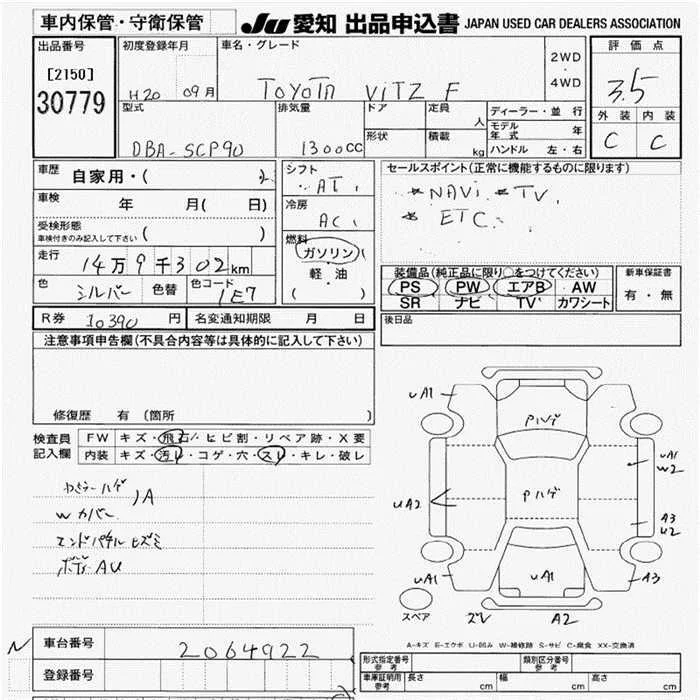 車内保管・守衛保管
JU 愛知 出品申込書 JAPAN USED CAR DEALERS ASSOCIATION
出品番号
[2150]
30779
初度登録年月
H20 09月
車名・グレード
TOYOTA VITZ F
2WD
・
4WD
評価点
3.5
外装 内装
C C
型式
DBA-SCP90
排気量
1300cc
ドア
形状
定員
人
積載
kg
ディーラー・並行
モデル年式 年
ハンドル 左・右
車歴
自家用・(
車検
年 月( 日)
受検形態
車検付きのみ記入して下さい ( )
走行
14万9千302km
色
シルバー
色替
色コード
1E7
シフト
AT
冷房
AC
燃料
ガソリン
軽・油
( )
セールスポイント(正常に機能するものに限ります)
* NAVi * TV
* ETC
装備品(純正品に限り○をつけてください)
PS PW エアB AW
SR ナビ TV カワシート
新車保証書
有・無
R券 10390 円
名変通知期限 月 日
後日品
注意事項申告欄(不具合内容等は具体的に記入して下さい)
修復歴 有 (箇所 )
検査員
記入欄
FW キズ・飛石・ヒビ割・リペア跡・X要
内装 キズ・汚レ・コゲ・穴・スレ・キレ・破レ
ハゲ
1A
Wカバー
エンドパネルヒズミ
ボディAU
uA1
Pハゲ
uA1
W2
uA2
Pハゲ
A3
U2
uA1
uA1
A3
スペア
ズレ
A2
A-キズ E-エクボ U-凹み W-補修跡 S-サビ C-腐食 XX-交換済
車台番号
2064922
登録番号
形式指定番号
参考
類別区分番号
参考
車庫証明用
参考
長さ cm
幅 cm
高さ cm